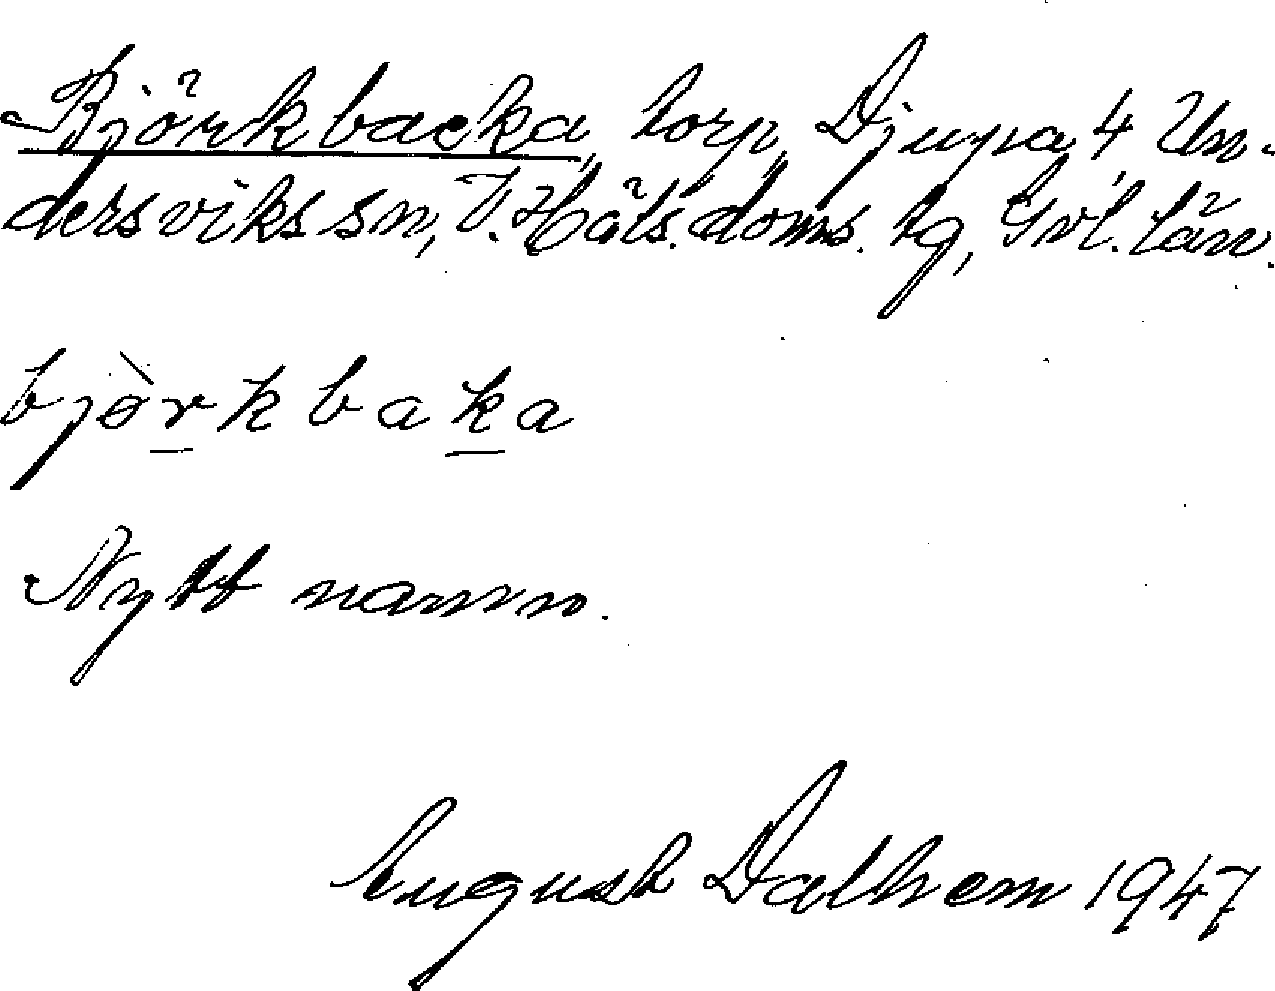 Björkbacka, torp, Djupa 4, Un-
dersviks sn, V. Häls. doms. tg, Gvl. län.
bjòrkbaka
Nytt namn.
August Dalhem 1947